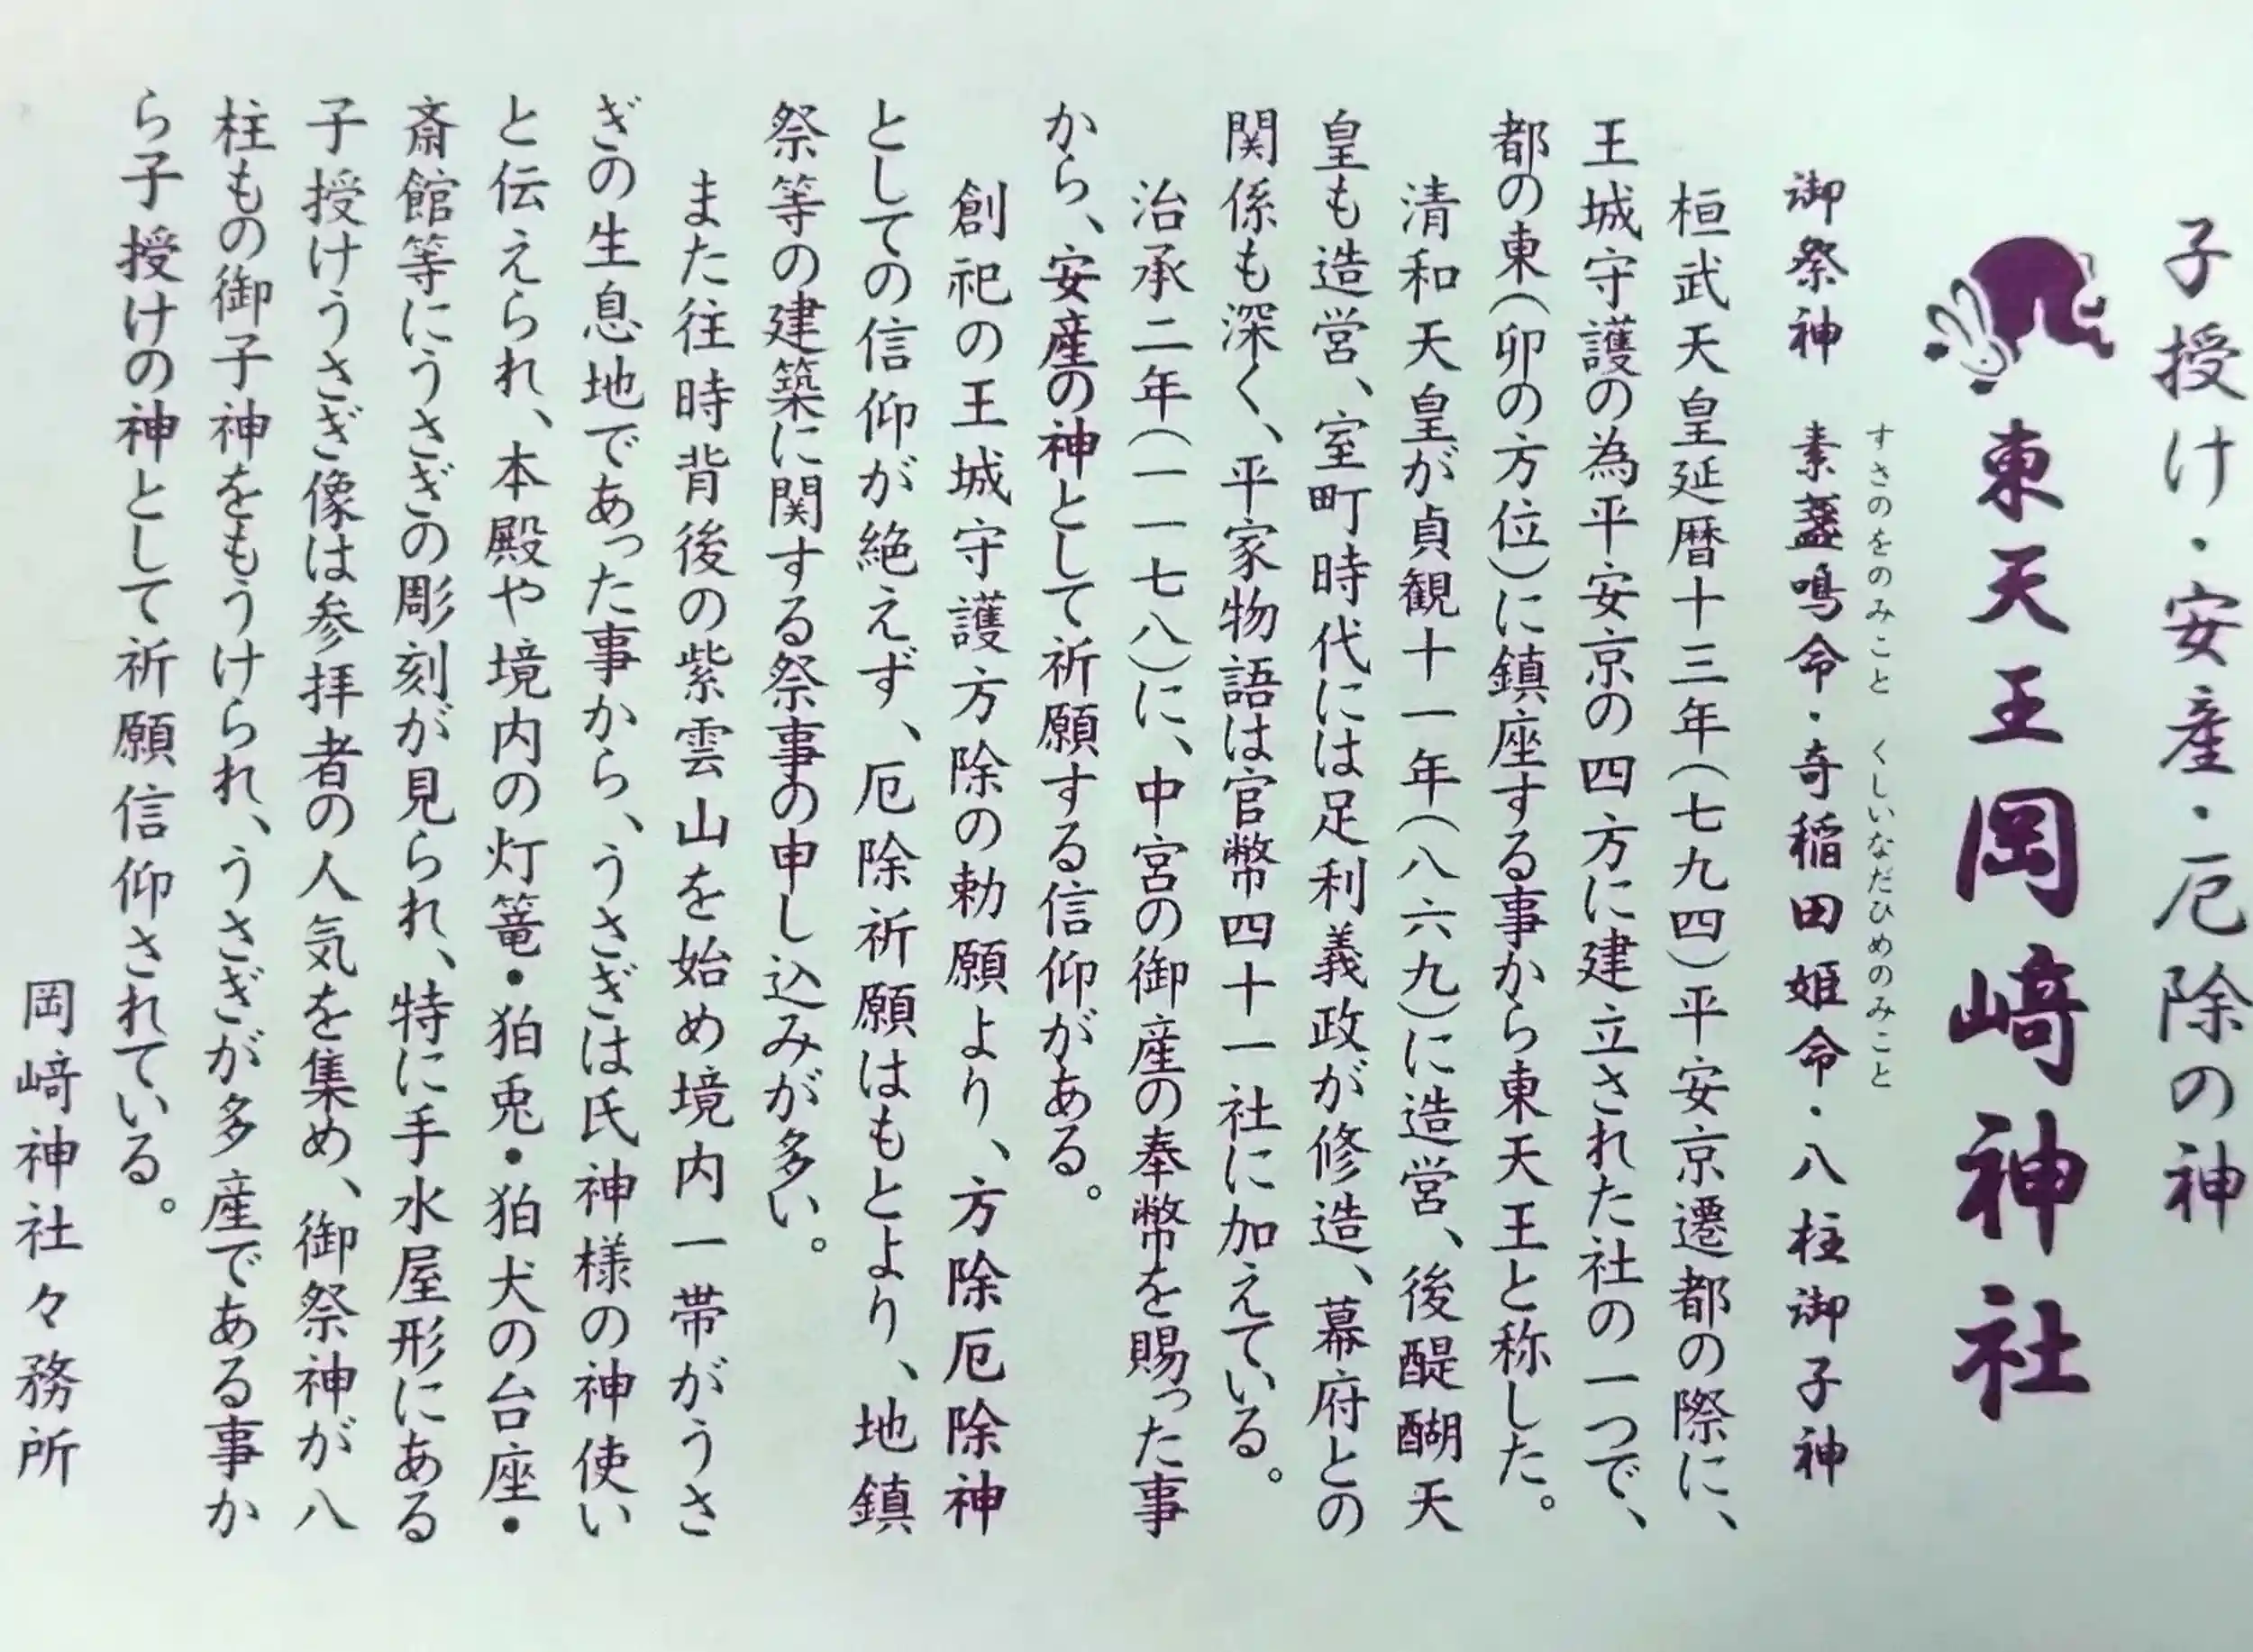 子授け・安産・厄除の神
東天王岡﨑神社
すさのをのみこと　くしいなだひめのみこと
御祭神　素盞鳴命・奇稲田姫命・八柱御子神
桓武天皇延暦十三年（七九四）平安京遷都の際に、
王城守護の為平安京の四方に建立された社の一つで、
都の東（卯の方位）に鎮座する事から東天王と称した。
清和天皇が貞観十一年（八六九）に造営、後醍醐天
皇も造営、室町時代には足利義政が修造、幕府との
関係も深く、平家物語は官幣四十一社に加えている。
治承二年（一一七八）に、中宮の御産の奉幣を賜った事
から、安産の神として祈願する信仰がある。
創祀の王城守護方除の勅願より、方除厄除神
としての信仰が絶えず、厄除祈願はもとより、地鎮
祭等の建築に関する祭事の申し込みが多い。
また往時背後の紫雲山を始め境内一帯がうさ
ぎの生息地であった事から、うさぎは氏神様の神使い
と伝えられ、本殿や境内の灯篭・狛兎・狛犬の台座・
斎館等にうさぎの彫刻が見られ、特に手水屋形にある
子授けうさぎ像は参拝者の人気を集め、御祭神が八
柱もの御子神をもうけられ、うさぎが多産である事か
ら子授けの神として祈願信仰されている。
岡﨑神社々務所